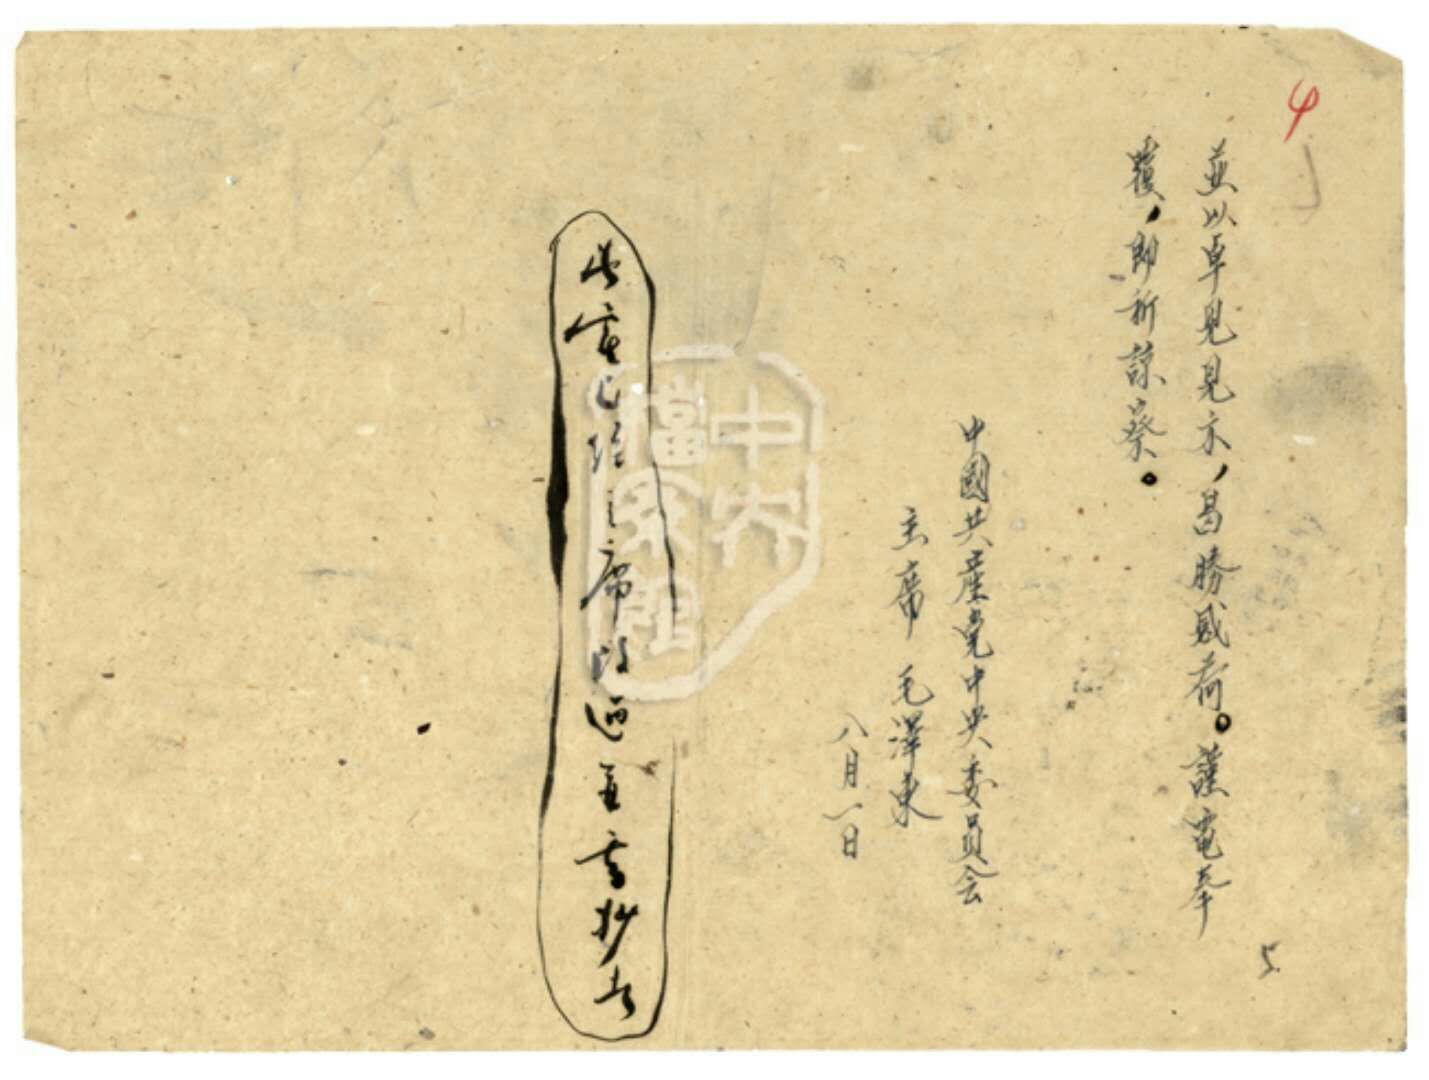 4
並以卓見見示，曷勝感荷。謹電奉
覆，即祈諒察。
中國共產党中央委員会
主席 毛澤東
八月一日
此電已經主席改过並高抄去
中央
檔案館
5